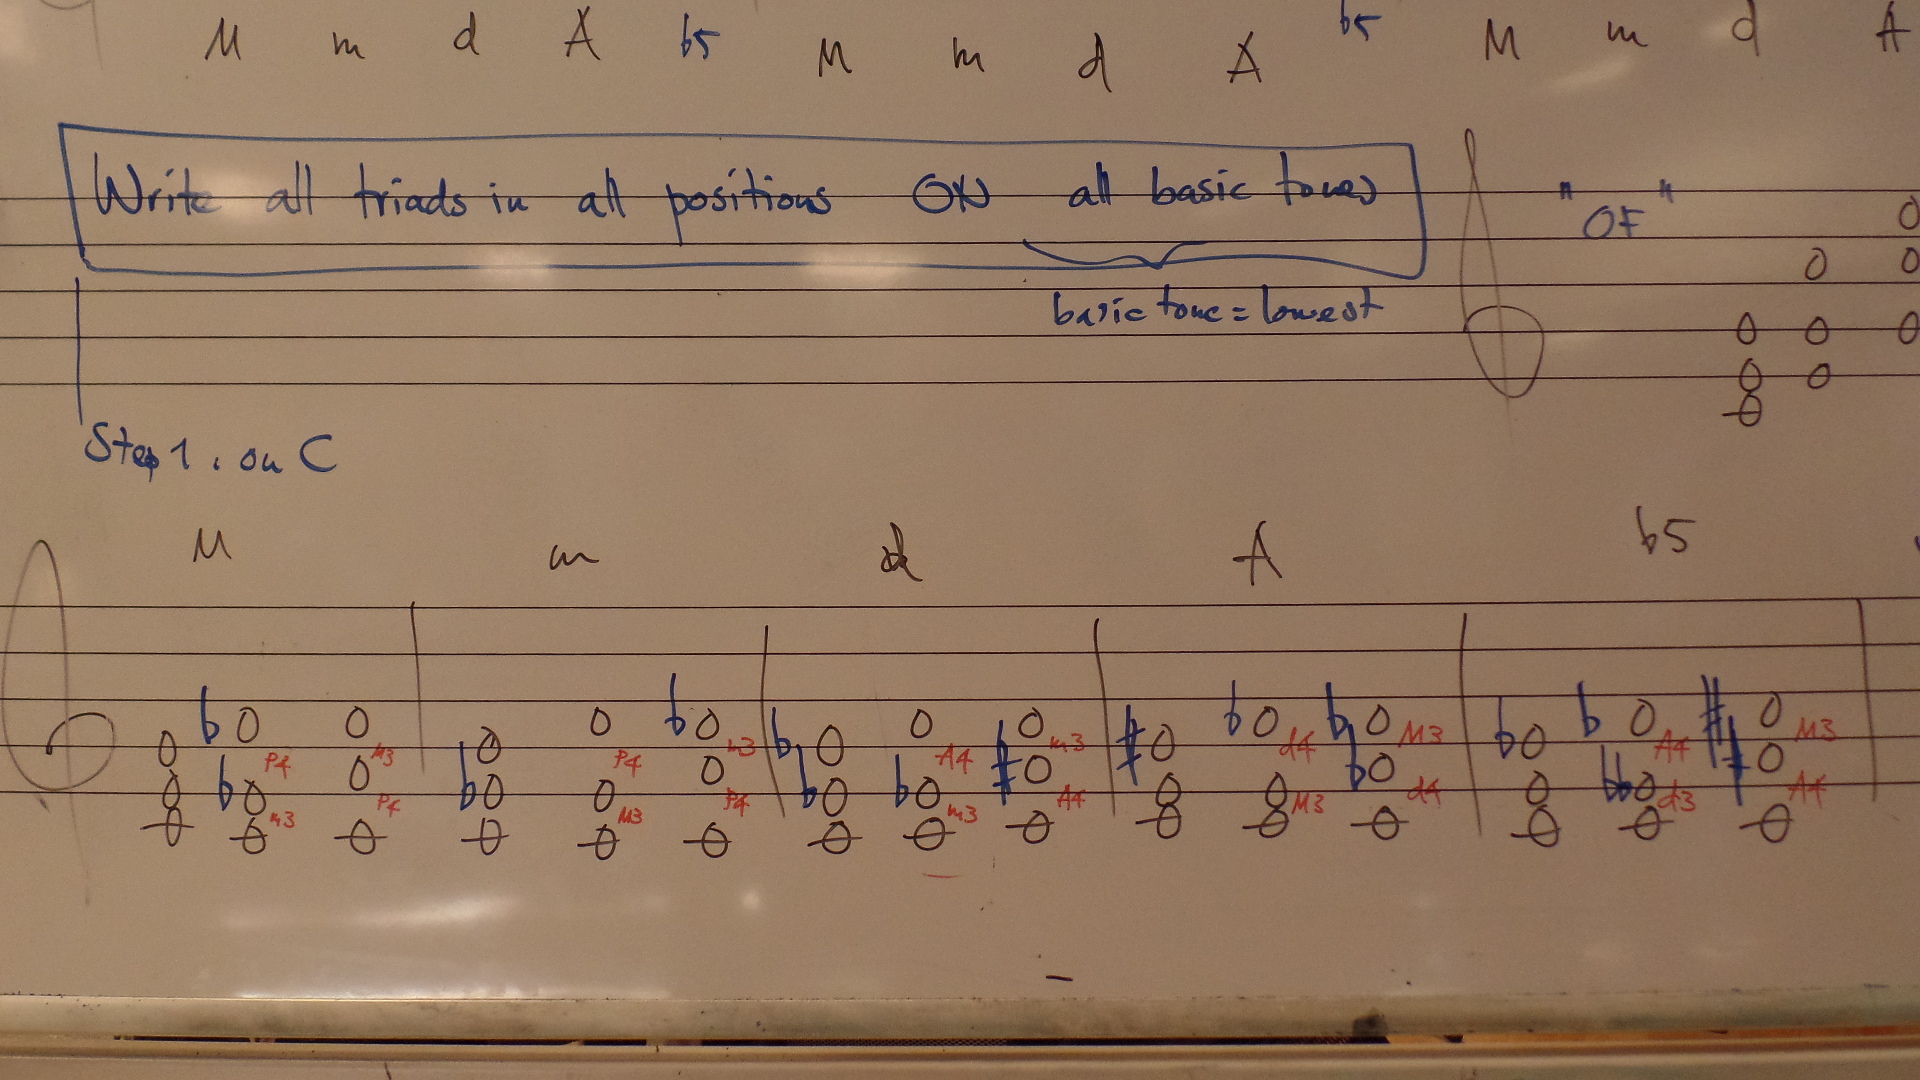 M m d A b5 M m d A b5 M m d A
Write all triads in all positions ON all basic tones
"OF"
basic tone = lowest
Step 1. on C
M m d A b5
b P4 M3 b m3 b A4 m3 b d4 b M3 b b A4 # M3
b m3 P4 b P4 M3 P4 b b m3 # A4 # M3 b d4 bb d3 # A4